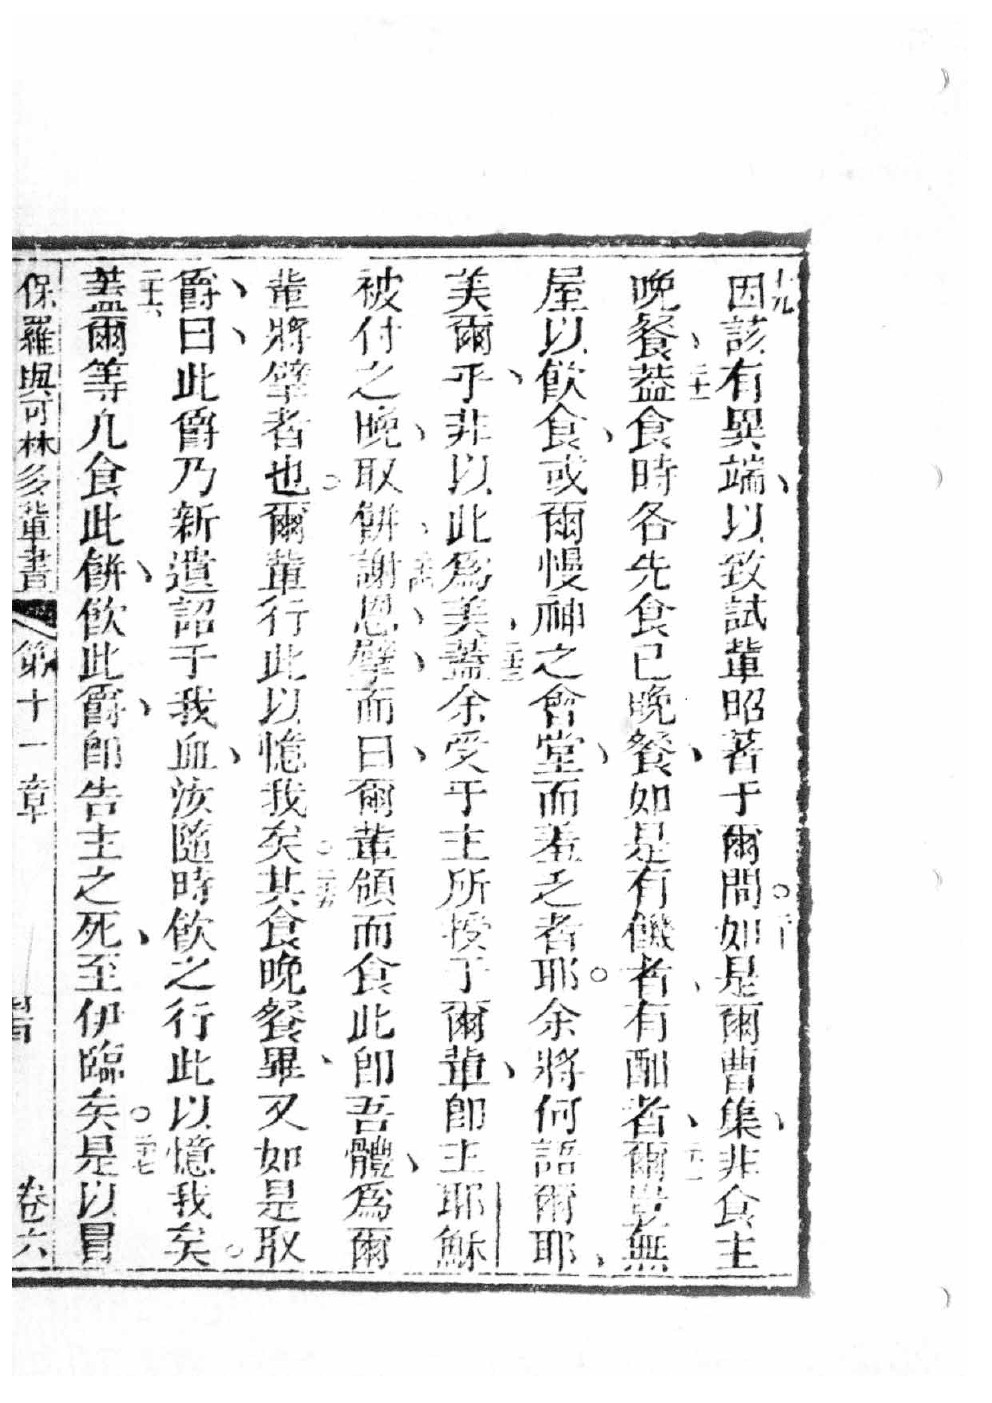 十九因該有異端、以致試輩昭著于爾間。二十如是爾曹集、非食主
晚餐、二十一葢食時各先食已晚餐、如是有饑者、有酣者、二十二爾豈無
屋以飲食、或爾慢神之會堂、而羞乏者耶。余將何語爾耶、
美爾乎、非以此爲美、二十三葢余受于主所授于爾輩、卽主耶穌
被付之晚、取餅、二十四謝恩、擘而曰、爾輩領而食、此卽吾體、爲爾
輩將擘者也。爾輩行此以憶我矣。二十五其食晚餐畢、又如是取
爵、曰、此爵乃新遺詔于我血、汝隨時飲之、行此以憶我矣。
二十六葢爾等凡食此餅、飲此爵、卽告主之死、至伊臨矣。二十七是以冒
保羅與可林多輩書 第十一章 卷六